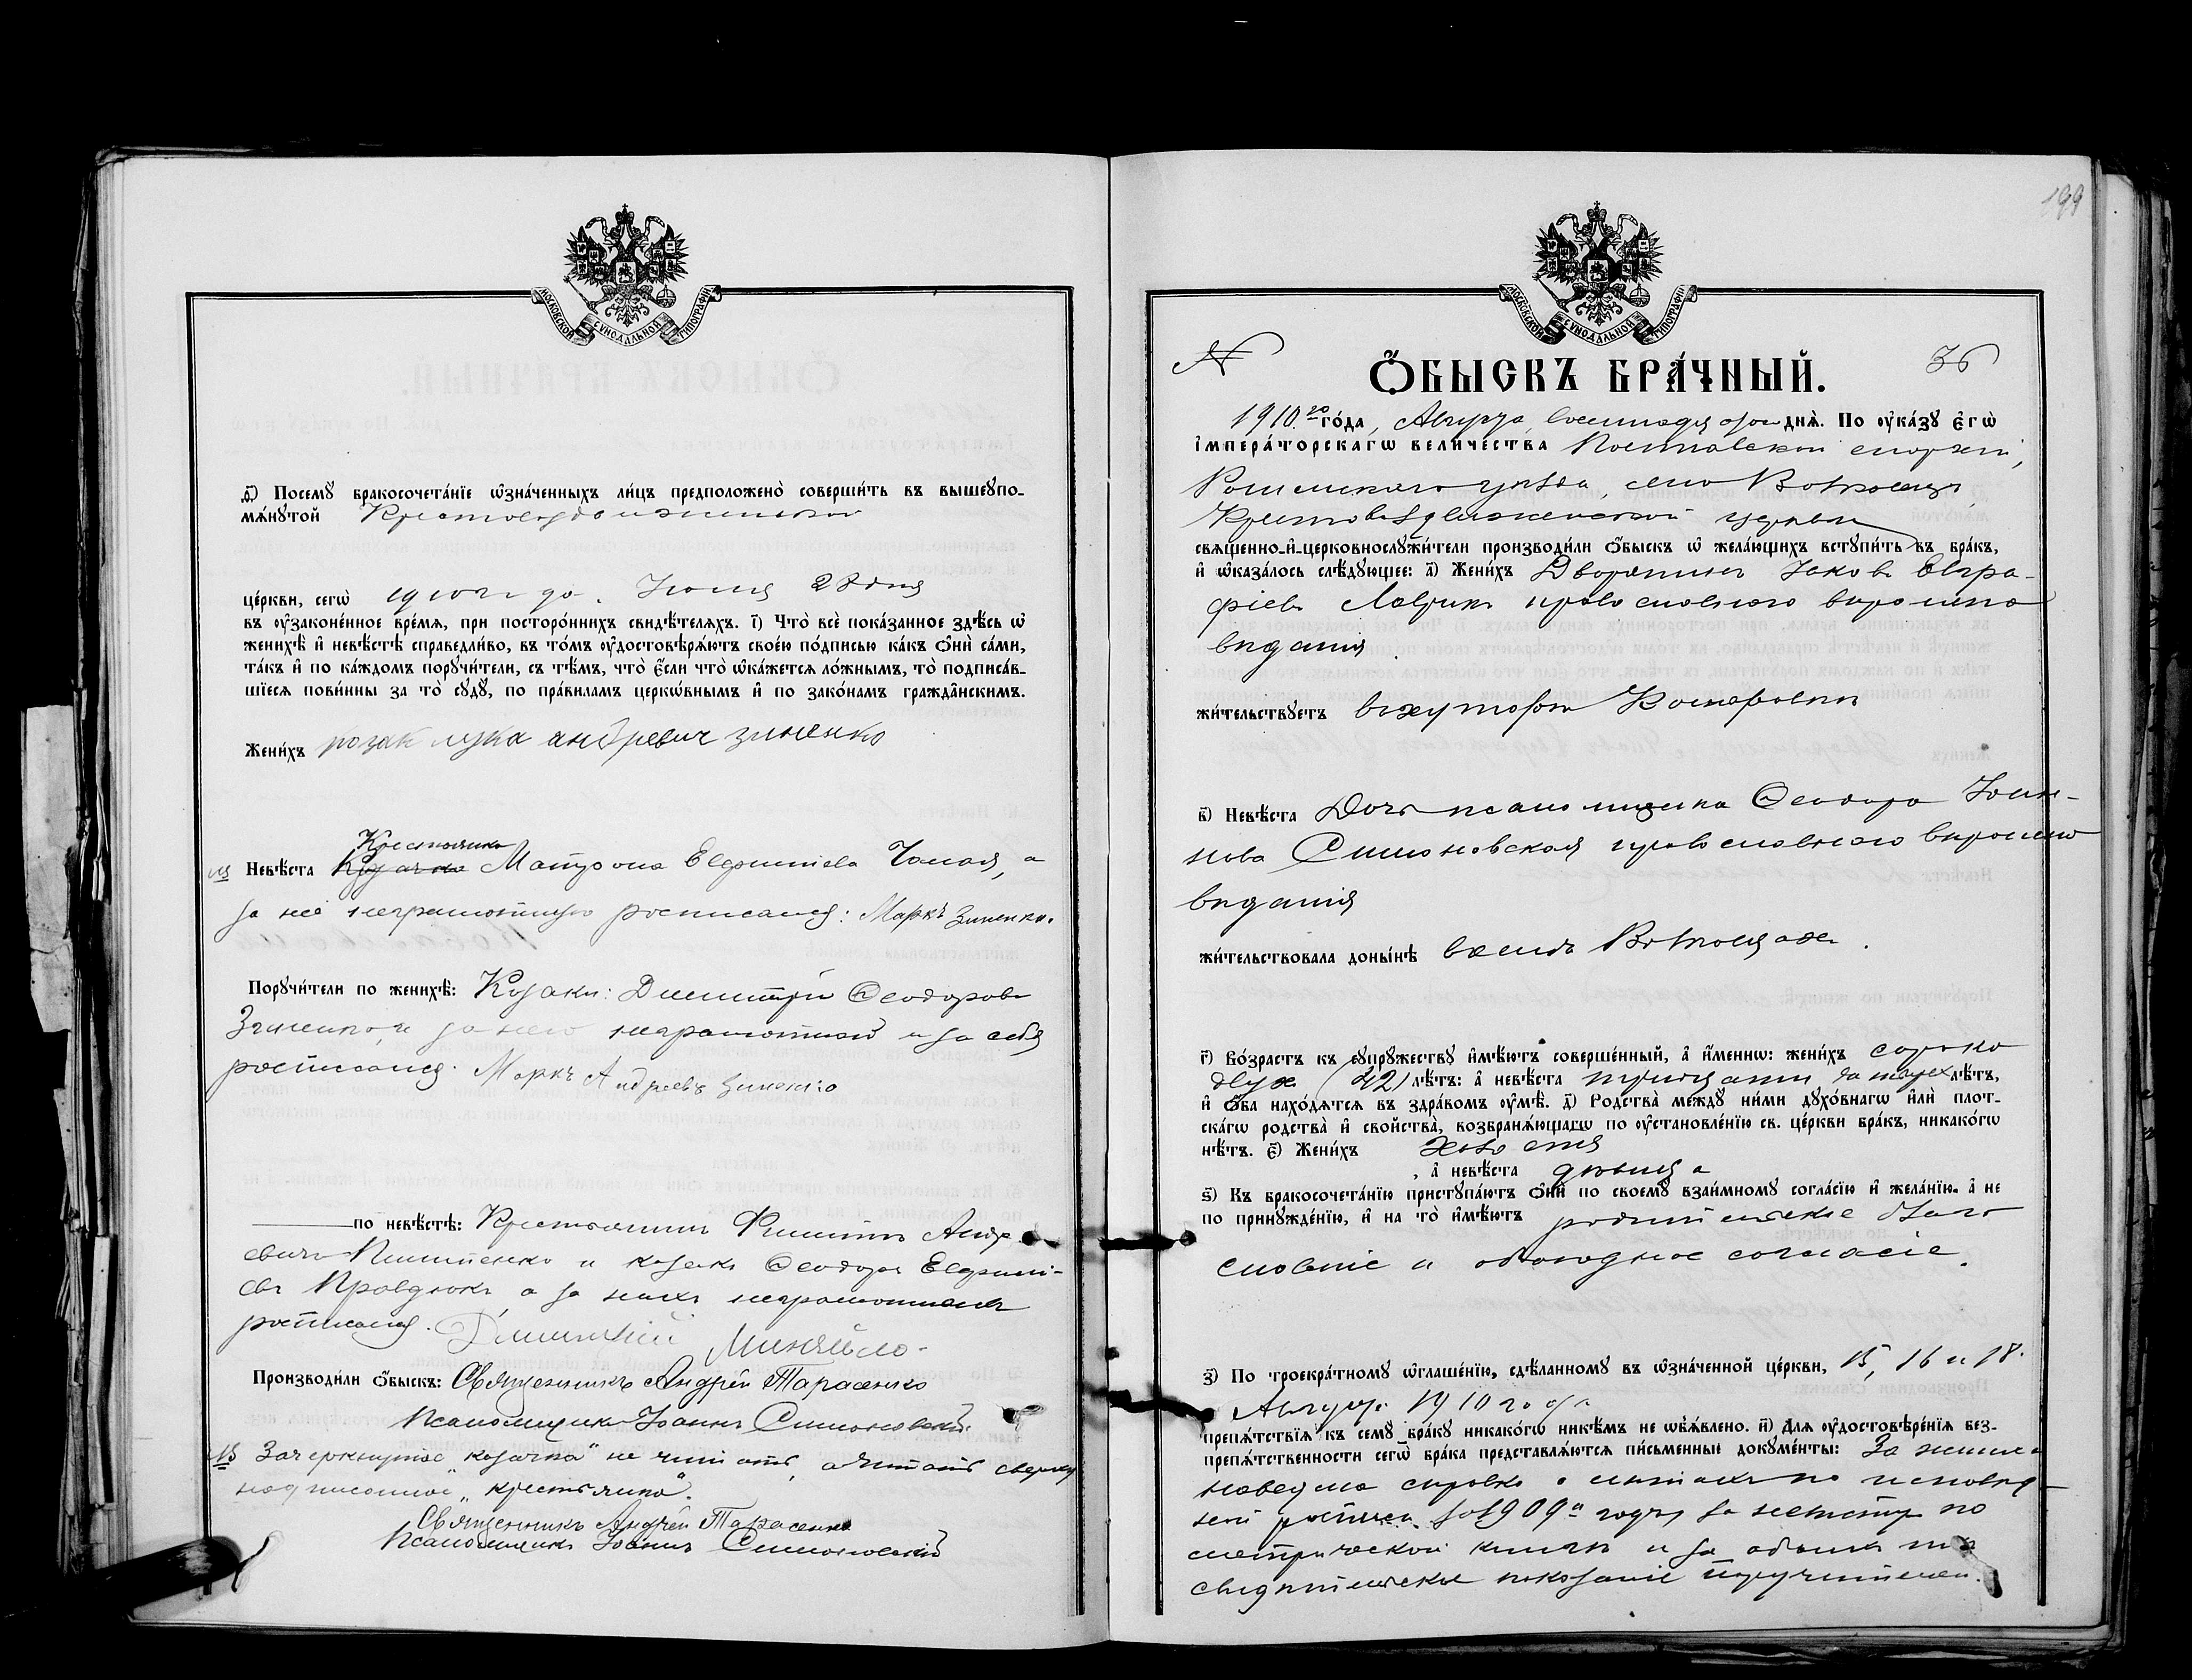 МОСКОВСКОЙ СѴНОДАЛЬНОЙ ТИПОГРАФІИ
д҃і) Посемꙋ бракосочета́нїе ѡ҆зна́ченныхъ ли́цъ предположено̀ соверши́ть въ вышеꙋпо-
мѧ́нꙋтой Крестовоздвиженской
це́ркви, сегѡ̀ 1910 года. Іюля 28 дня
въ ᲂу҆законе́нное вре́мѧ, при посторо́ннихъ свидѣ́телѧхъ. і҃) Что̀ всѐ пока́занное здѣ́сь ѡ҆
женихѣ̀ и҆ невѣ́стѣ справедли́во, въ то́мъ ᲂу҆достовѣрѧ́ютъ свое́ю по́дписью ка́къ ѻ҆нѝ са́ми,
та́къ и҆ по ка́ждомъ порꙋчи́тели, съ тѣ́мъ, что̀ є҆́сли что̀ ѡ҆ка́жетсѧ ло́жнымъ, то̀ подписа́в-
шїесѧ пови́нны за то̀ сꙋдꙋ̀, по пра́виламъ церкѡ́внымъ и҆ по зако́намъ гражда̂нскимъ.
Жени́хъ козак лука андревич зиненко
Крестьянка
NB Невѣ́ста Козачка Матрона Евфиміева Чалая, а
за неё неграмотную росписался: Маркъ Зиненко.
Порꙋчи́тели по женихѣ̀: Козаки: Димитрій Ѳеодоровъ
Зиненко, и за него неграмотного и за себя
росписался. Маркъ Андреевъ Зиненко
по невѣ́стѣ: Крестьянинъ Филиппъ Андр-
евичъ и козакъ Ѳеодоръ Евфимі-
евъ Правдюкъ, а за нихъ неграмотныхъ
росписался. Дмитрій Миняйло.
Производи́ли ѻ҆́быскъ: Священникъ Андрей Тарасенко
Псаломщикъ Іоаннъ Симоновскій.
NB Зачеркнутое „козачка" не читать, а читать сверху
надписанное „крестьянка".
Священникъ Андрей Тарасенко
Псаломщикъ Іоаннъ Симоновскій
199
МОСКОВСКОЙ СѴНОДАЛЬНОЙ ТИПОГРАФІИ
N 36
Ѻ҆́БЫСКЪ БРА́ЧНЫЙ.
1910.го го́да, Августа, восемнадцатого днѧ̀. По ᲂу҆ка́зꙋ є҆гѡ̀
і҆мпера́торскагѡ вели́чества Полтавской епархіи,
Роменского уѣзда, села
Крестовоздвиженской церкви
свѧще́нно-и҆-церковнослꙋжи́тели производи́ли ѻ҆́быскъ ѡ҆ жела́ющихъ встꙋпи́ть въ бра́къ,
и҆ ѡ҆каза́лось слѣ́дꙋющее: а҃) Жени́хъ Дворянинъ Іаковъ Евгра-
фіевъ Лаврикъ православного вѣроиспо
вѣданія
жи́тельствꙋетъ въ хуторѣ
в҃) Невѣ́ста Дочь псаломщика Ѳеодора Іоан-
нова Симоновская православного вѣроиспо
вѣданія
жи́тельствовала доны́нѣ въ селѣ
г҃) Во́зрастъ къ сꙋпрꙋ́жествꙋ и҆мѣ́ютъ соверше́нный, а҆ и҆́менно: жени́хъ сорока
двух (42) лѣ́тъ: а҆ невѣ́ста тридцати лѣ́тъ,
и҆ ѻ҆́ба нахо́дѧтсѧ въ здра́вомъ ᲂу҆мѣ̀. д҃) Родства̀ ме́ждꙋ ни́ми дꙋхо́внагѡ и҆лѝ плот-
ска́гѡ родства̀ и҆ свойства̀, возбранѧ́ющагѡ по ᲂу҆становле́нїю св. це́ркви бра́къ, никако́гѡ
нѣ́тъ. є҃) Жени́хъ холостъ
, а҆ невѣ́ста дѣвица
ѕ҃) Къ бракосочета́нїю пристꙋпа́ютъ ѻ҆нѝ по своемꙋ̀ взаи́мномꙋ согла́сїю и҆ жела́нїю, а҆ не
по принꙋжде́нїю, и҆ на то̀ и҆мѣ́ютъ родительское благо
словеніе и обоюдное согласіе.
з҃) По троекра́тномꙋ ѡ҆глаше́нїю, сдѣ́ланномꙋ въ ѡ҆зна́ченной це́ркви, 15, 16 и 18.
Августа 1910 года
препѧ́тствїѧ къ семꙋ̀ бра́кꙋ никако́гѡ никѣ́мъ не ѡ҆б̾ѧ́влено. и҃) Длѧ ᲂу҆достовѣре́нїѧ без-
препѧ́тственности сегѡ̀ бра́ка представлѧ́ютсѧ пи́сьменные докꙋме́нты: За жениха
наведена справка о лѣтахъ по исповѣд-
ной росписи за 1909й годъ, за невѣсту по
метрической книгѣ и за обоихъ
свидѣтельское показаніе поручителей.